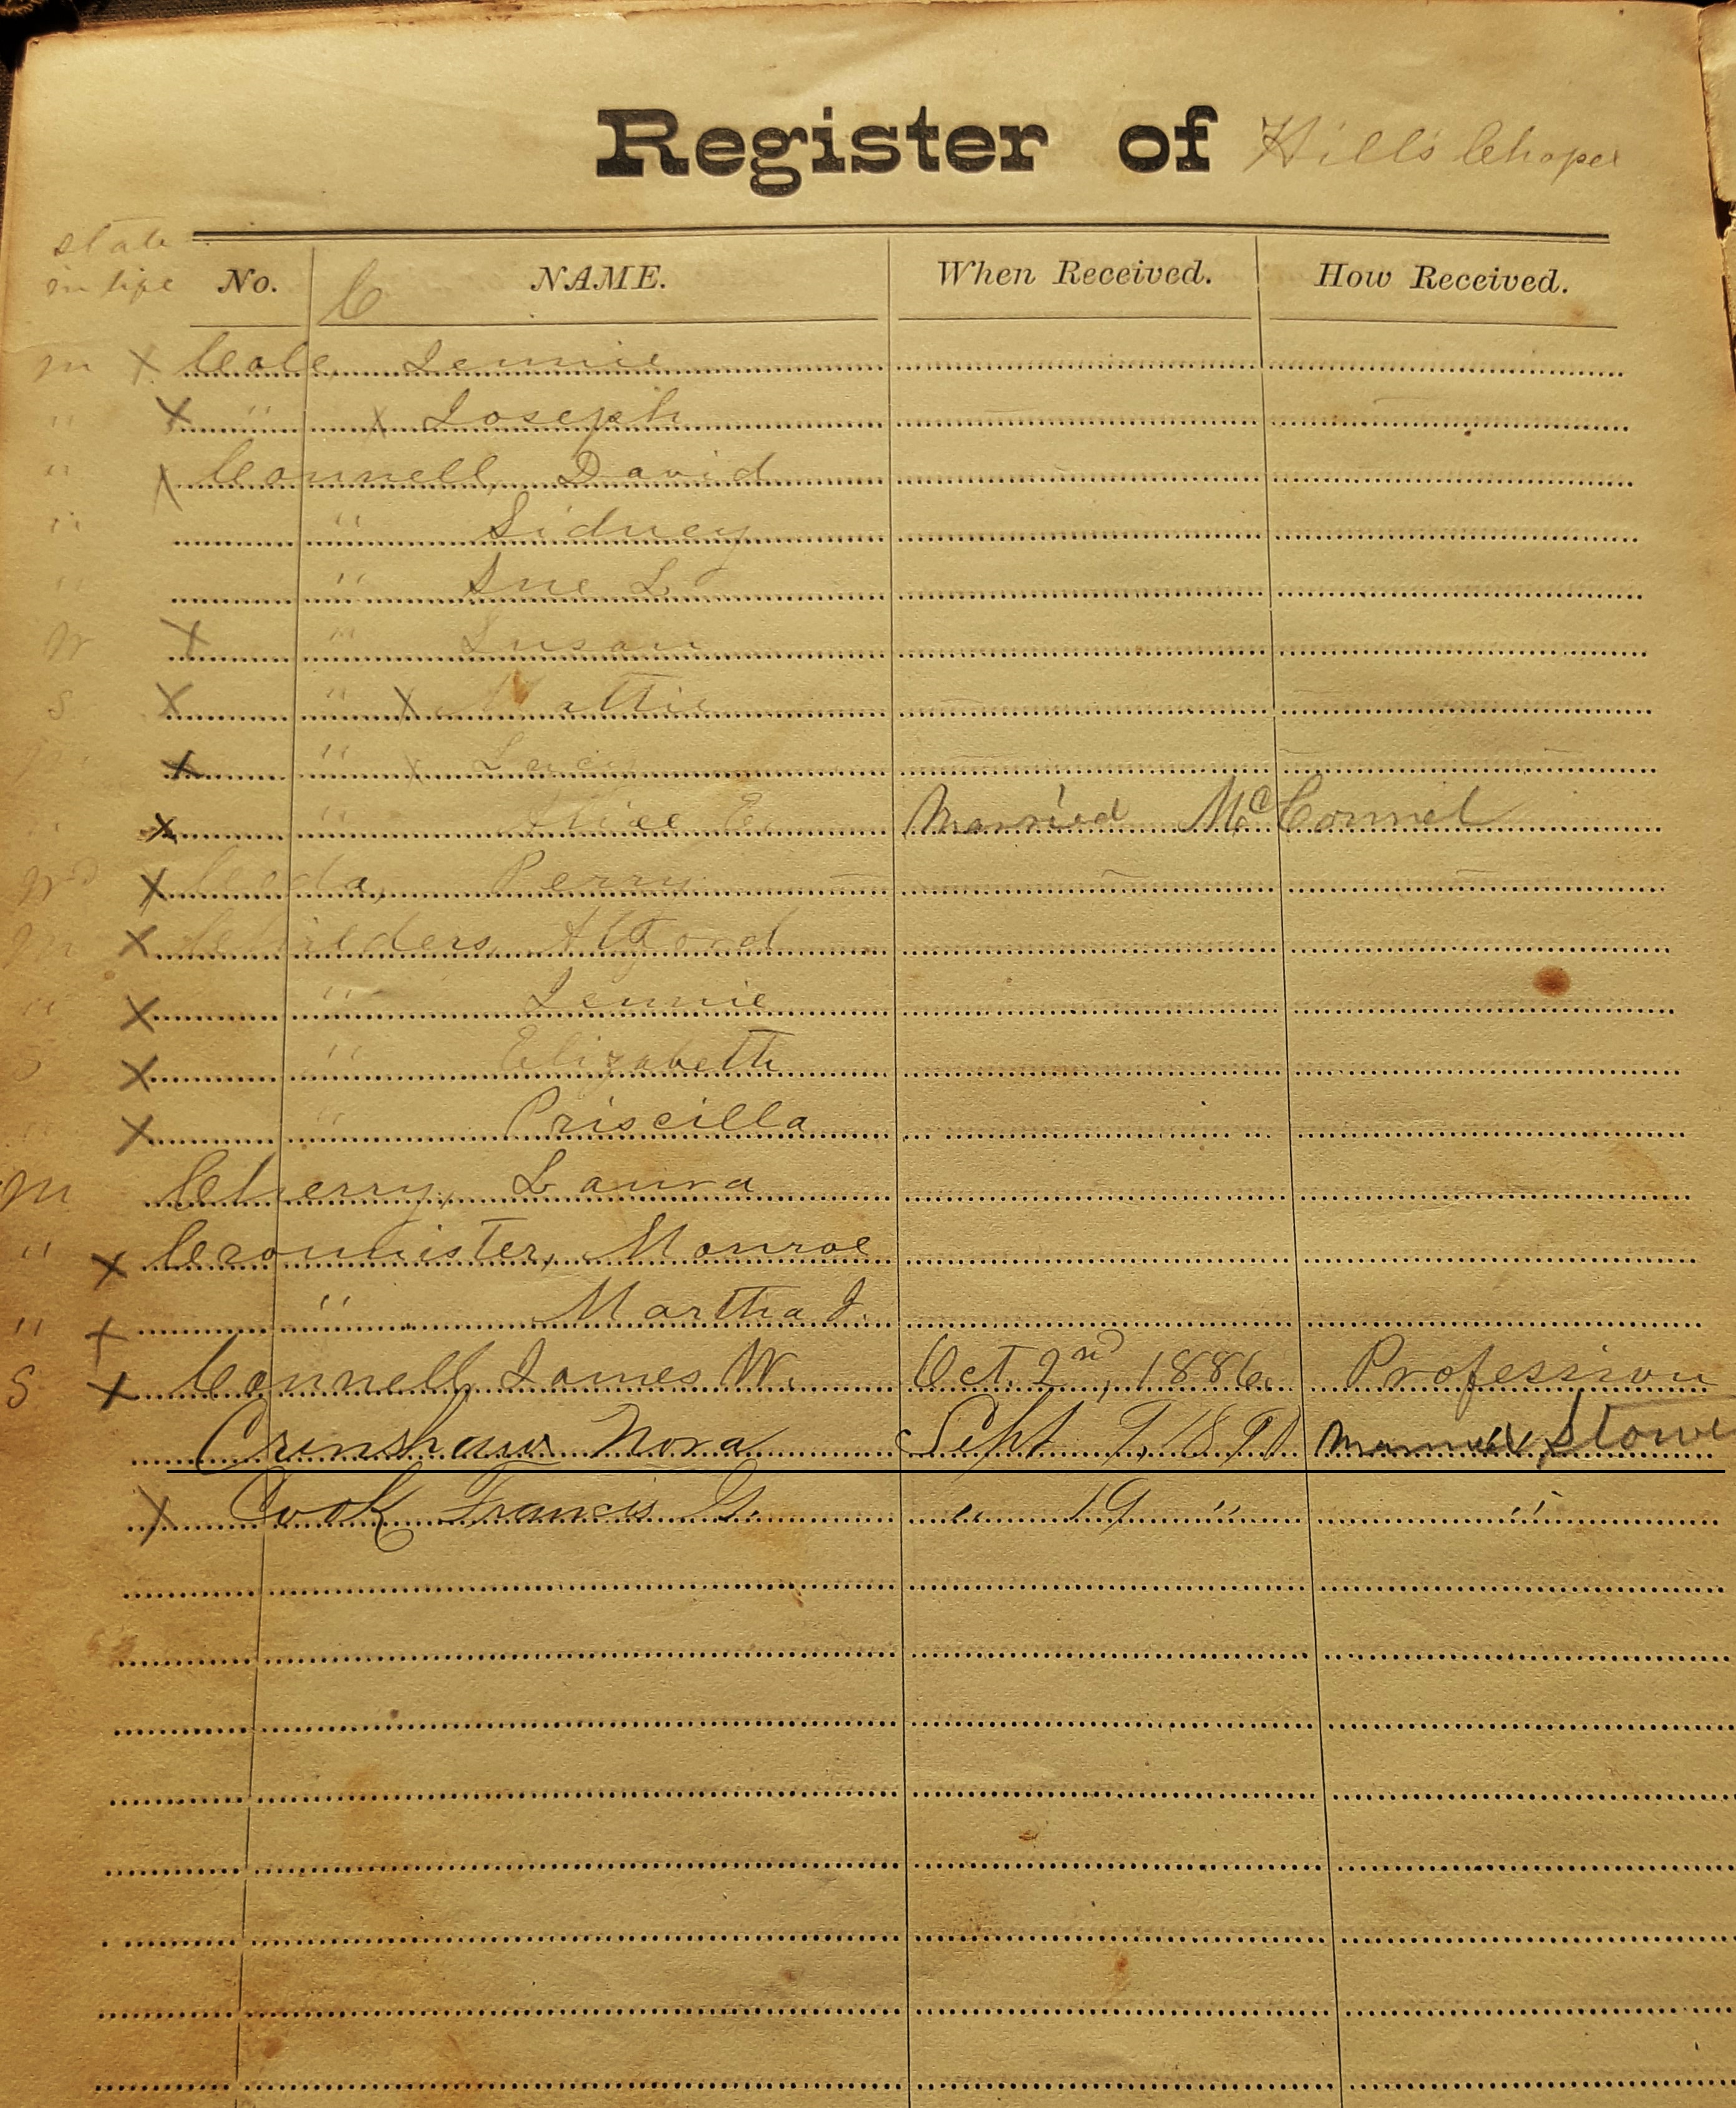 Register of Hill's Chapel
State
in life No. C NAME. When Received. How Received.
m X Cole, Jennie
" X " X Joseph
" X Connell, David
" " Sidney
" " Sue L
W X " Susan
S X " X Mattie
X " X Lucy
" X " Alice E. Married McConnel
Wd X Perry
m X Childers, Alford
" X " Jennie
S X " Elizabeth
" X " Priscilla
m Cherry, Laura
" X Cronmister, Monroe
" X " Martha J.
S X Connell, James W. Oct. 2nd, 1886. Profession
Crenshaw Nora Sept 9, 1890 Married Stowe
X Cook Francis G. " 19 " "